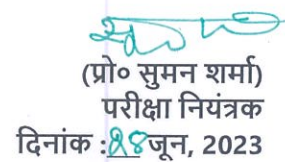 (प्रो० सुमन शर्मा)
परीक्षा नियंत्रक
दिनांक :28 जून, 2023